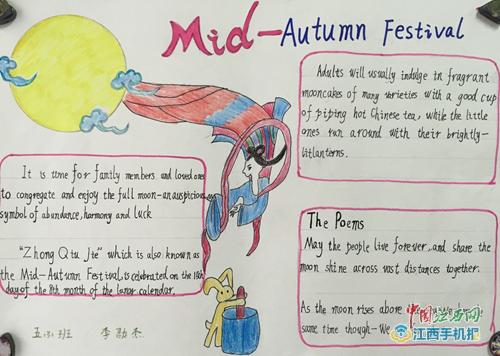 Mid-Autumn Festival
Adults will usually indulge in fragrant
mooncakes of many varieties with a good cup
of piping hot Chinese tea, while the little
ones run around with their brightly-
litlanterns.
It is time for family members and loved ones
to congregate and enjoy the full moon-an auspicious
symbol of abundance, harmony and luck
"Zhong Qiu Jie" which is also known as
the Mid-Autumn Festival, is celebrated on the 15th
day of the 8th month of the lunar calendar.
The Poems
May the people live forever, and share the
moon shine across vast distances together.
As the moon rises above
same time though-We
五 班 李
中国江西网
江西手机报